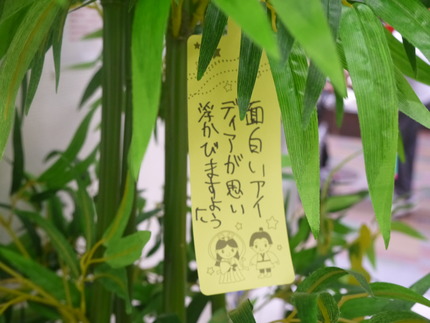 面白いアイ
ディアが思い
浮かびますよう
に